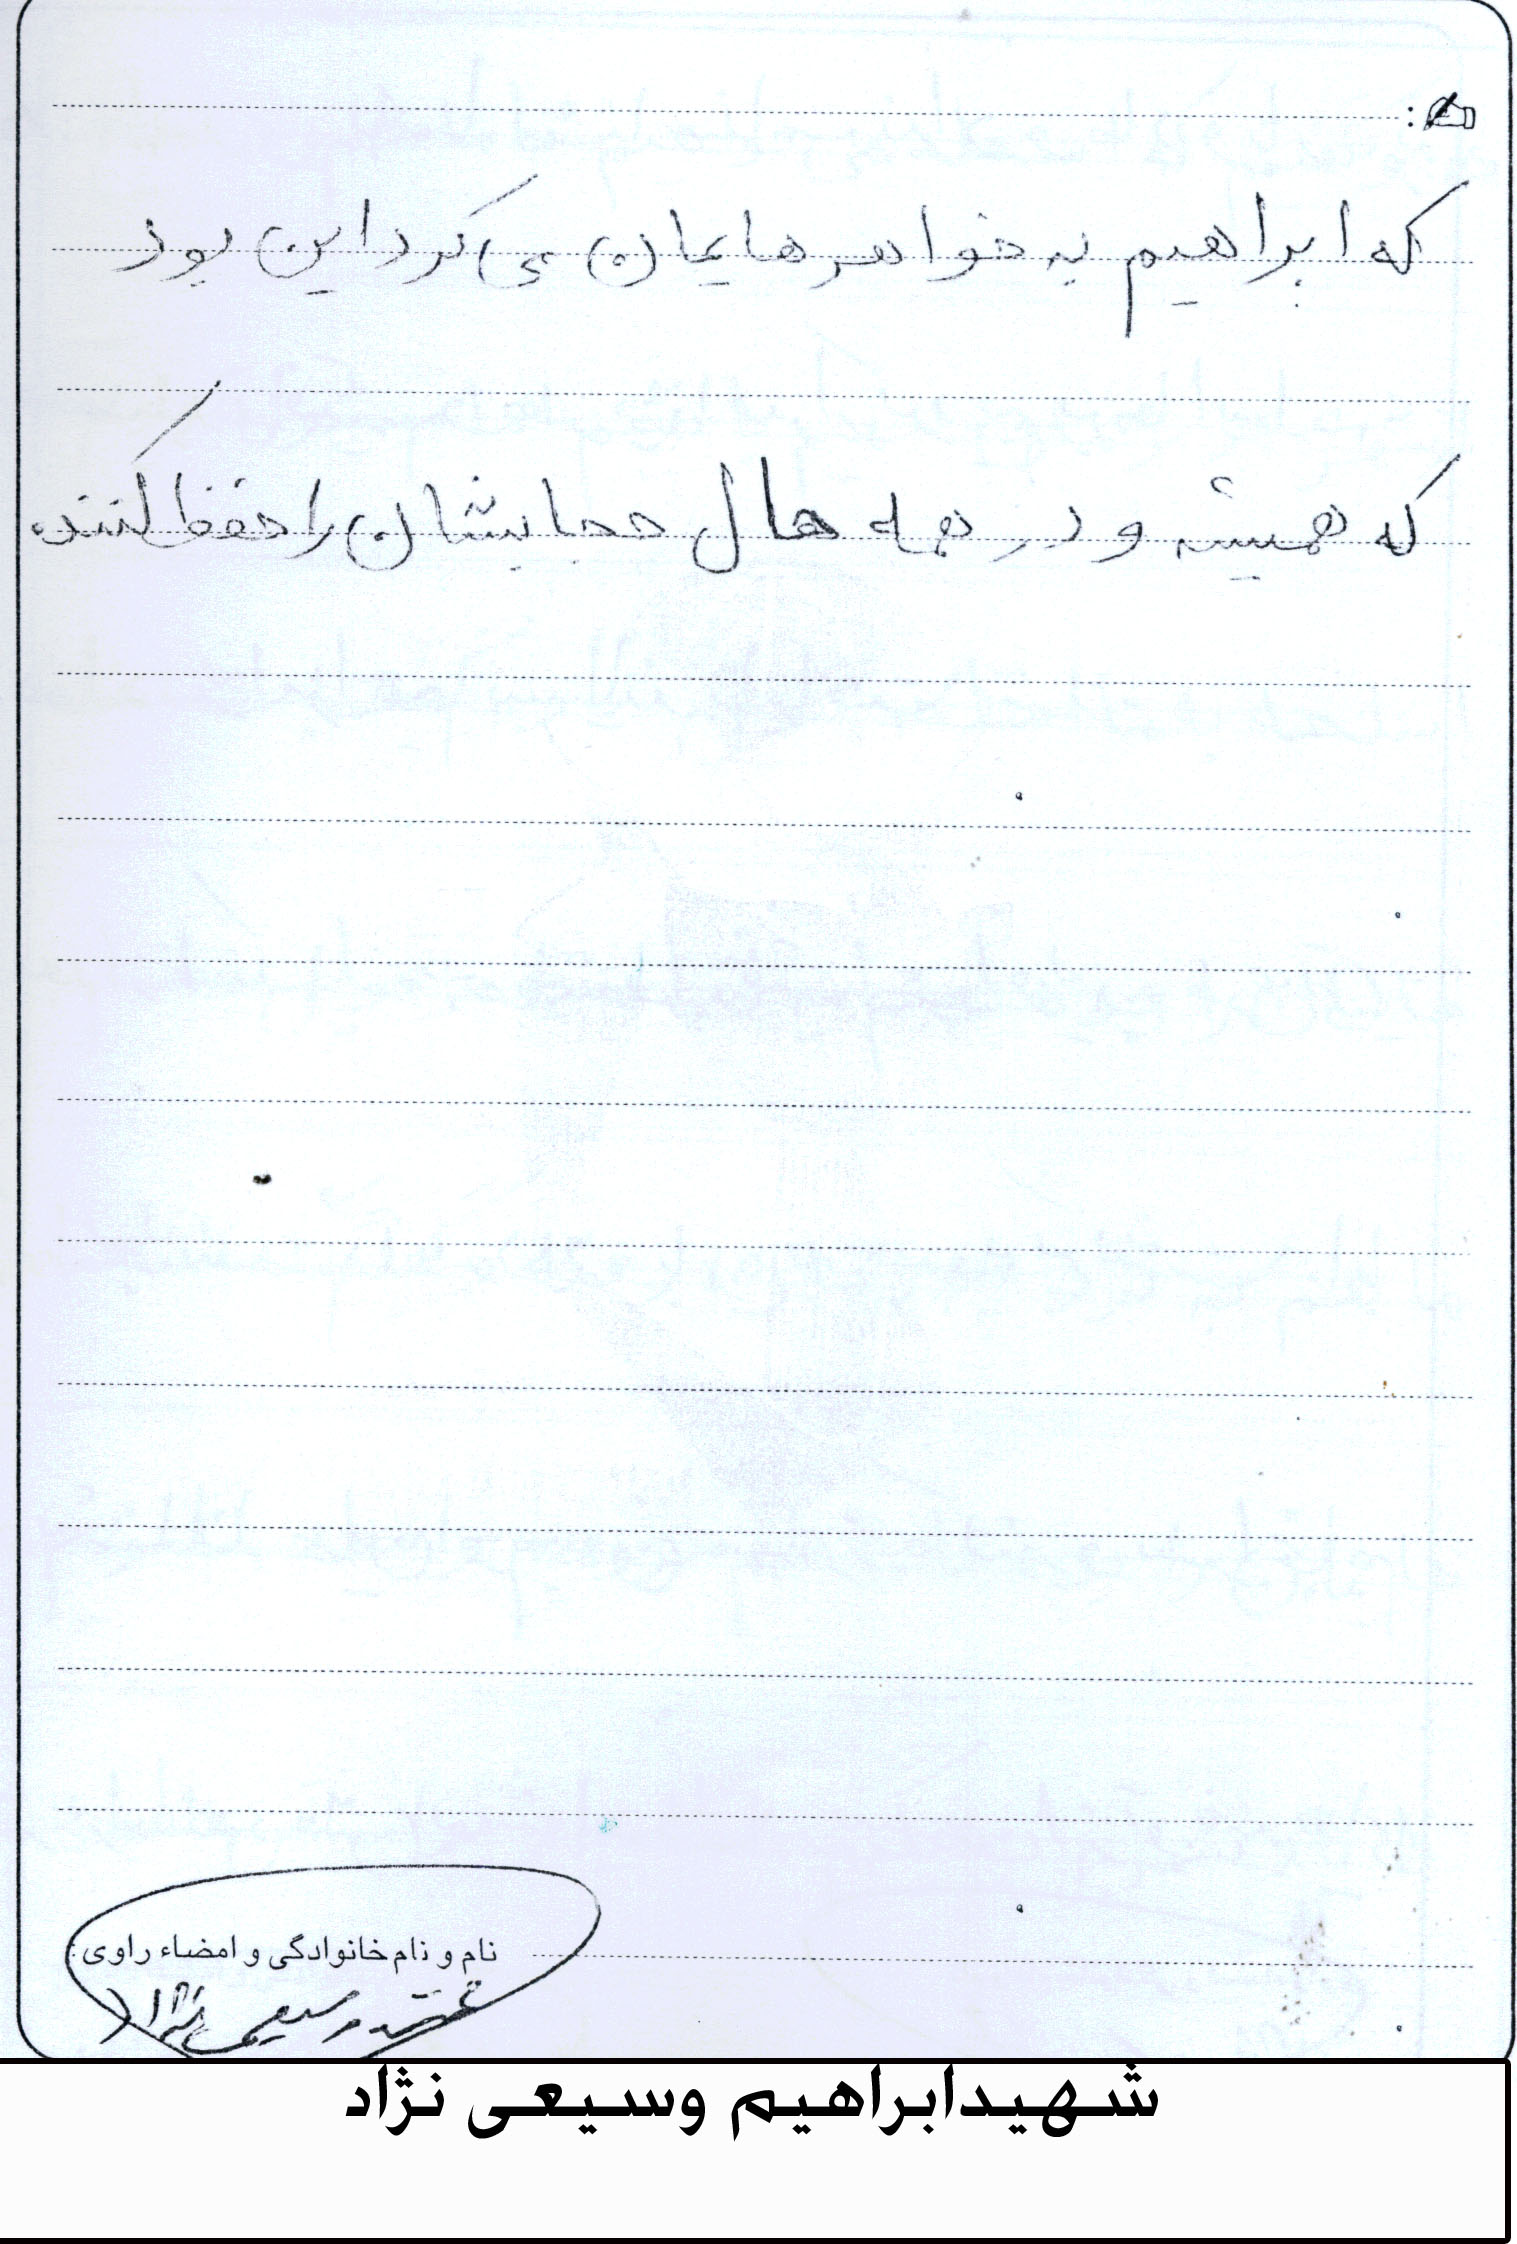 که ابراهیم به خواهرهایمان می کرد این بود
که همیشه و در همه هال حجابشان را حفظ کنند.
نام و نام خانوادگی و امضاء راوی:
وسیعی نژاد
شهیدابراهیم وسیعی نژاد